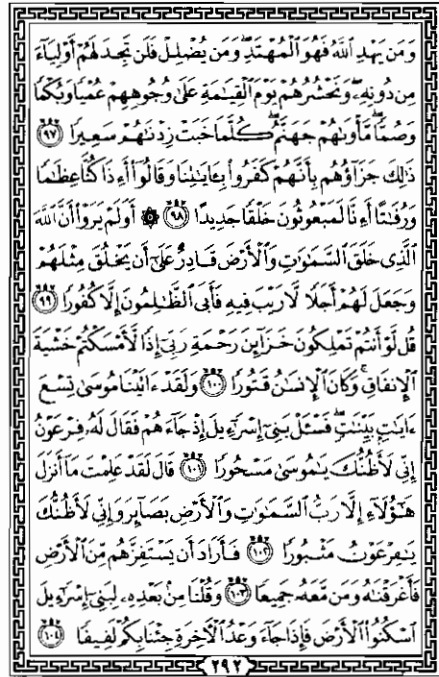 وَمَن يَهْدِ ٱللَّهُ فَهُوَ ٱلْمُهْتَدِ وَمَن يُضْلِلْ فَلَن تَجِدَ لَهُمْ أَوْلِيَآءَ
مِن دُونِهِۦ وَنَحْشُرُهُمْ يَوْمَ ٱلْقِيَٰمَةِ عَلَىٰ وُجُوهِهِمْ عُمْيًا وَبُكْمًا
وَصُمًّا مَّأْوَىٰهُمْ جَهَنَّمُ كُلَّمَا خَبَتْ زِدْنَٰهُمْ سَعِيرًا ٩٧
ذَٰلِكَ جَزَآؤُهُم بِأَنَّهُمْ كَفَرُوا۟ بِـَٔايَٰتِنَا وَقَالُوٓا۟ أَءِذَا كُنَّا عِظَٰمًا
وَرُفَٰتًا أَءِنَّا لَمَبْعُوثُونَ خَلْقًا جَدِيدًا ٩٨ ۞ أَوَلَمْ يَرَوْا۟ أَنَّ ٱللَّهَ
ٱلَّذِى خَلَقَ ٱلسَّمَٰوَٰتِ وَٱلْأَرْضَ قَادِرٌ عَلَىٰٓ أَن يَخْلُقَ مِثْلَهُمْ
وَجَعَلَ لَهُمْ أَجَلًا لَّا رَيْبَ فِيهِ فَأَبَى ٱلظَّٰلِمُونَ إِلَّا كُفُورًا ٩٩
قُل لَّوْ أَنتُمْ تَمْلِكُونَ خَزَآئِنَ رَحْمَةِ رَبِّىٓ إِذًا لَّأَمْسَكْتُمْ خَشْيَةَ
ٱلْإِنفَاقِ وَكَانَ ٱلْإِنسَٰنُ قَتُورًا ١٠٠ وَلَقَدْ ءَاتَيْنَا مُوسَىٰ تِسْعَ
ءَايَٰتٍۭ بَيِّنَٰتٍ فَسْـَٔلْ بَنِىٓ إِسْرَٰٓءِيلَ إِذْ جَآءَهُمْ فَقَالَ لَهُۥ فِرْعَوْنُ
إِنِّى لَأَظُنُّكَ يَٰمُوسَىٰ مَسْحُورًا ١٠١ قَالَ لَقَدْ عَلِمْتَ مَآ أَنزَلَ
هَٰٓؤُلَآءِ إِلَّا رَبُّ ٱلسَّمَٰوَٰتِ وَٱلْأَرْضِ بَصَآئِرَ وَإِنِّى لَأَظُنُّكَ
يَٰفِرْعَوْنُ مَثْبُورًا ١٠٢ فَأَرَادَ أَن يَسْتَفِزَّهُم مِّنَ ٱلْأَرْضِ
فَأَغْرَقْنَٰهُ وَمَن مَّعَهُۥ جَمِيعًا ١٠٣ وَقُلْنَا مِنۢ بَعْدِهِۦ لِبَنِىٓ إِسْرَٰٓءِيلَ
ٱسْكُنُوا۟ ٱلْأَرْضَ فَإِذَا جَآءَ وَعْدُ ٱلْـَٔاخِرَةِ جِئْنَا بِكُمْ لَفِيفًا ١٠٤
٢٩٢